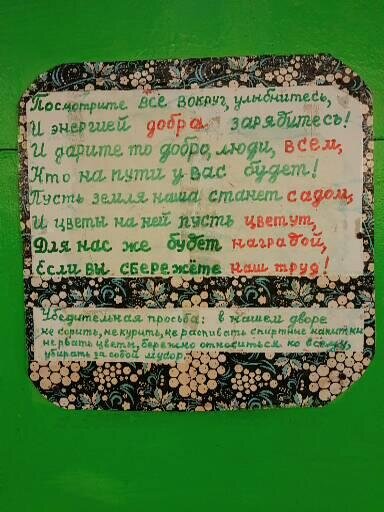 Посмотрите все вокруг, улыбнитесь,
И энергией добра зарябитесь!
И дарите то добро, люди, всем,
Кто на пути у вас будет!
Пусть земля наша станет садом,
И цветы на ней пусть цветут,
Для нас же будет наградой,
Если вы сбережёте наш труд!
Убедительная просьба: в нашем дворе
не сорить, не курить, не распивать спиртные напитки
не рвать цветы, бережно относиться ко всему,
убирать за собой мусор.